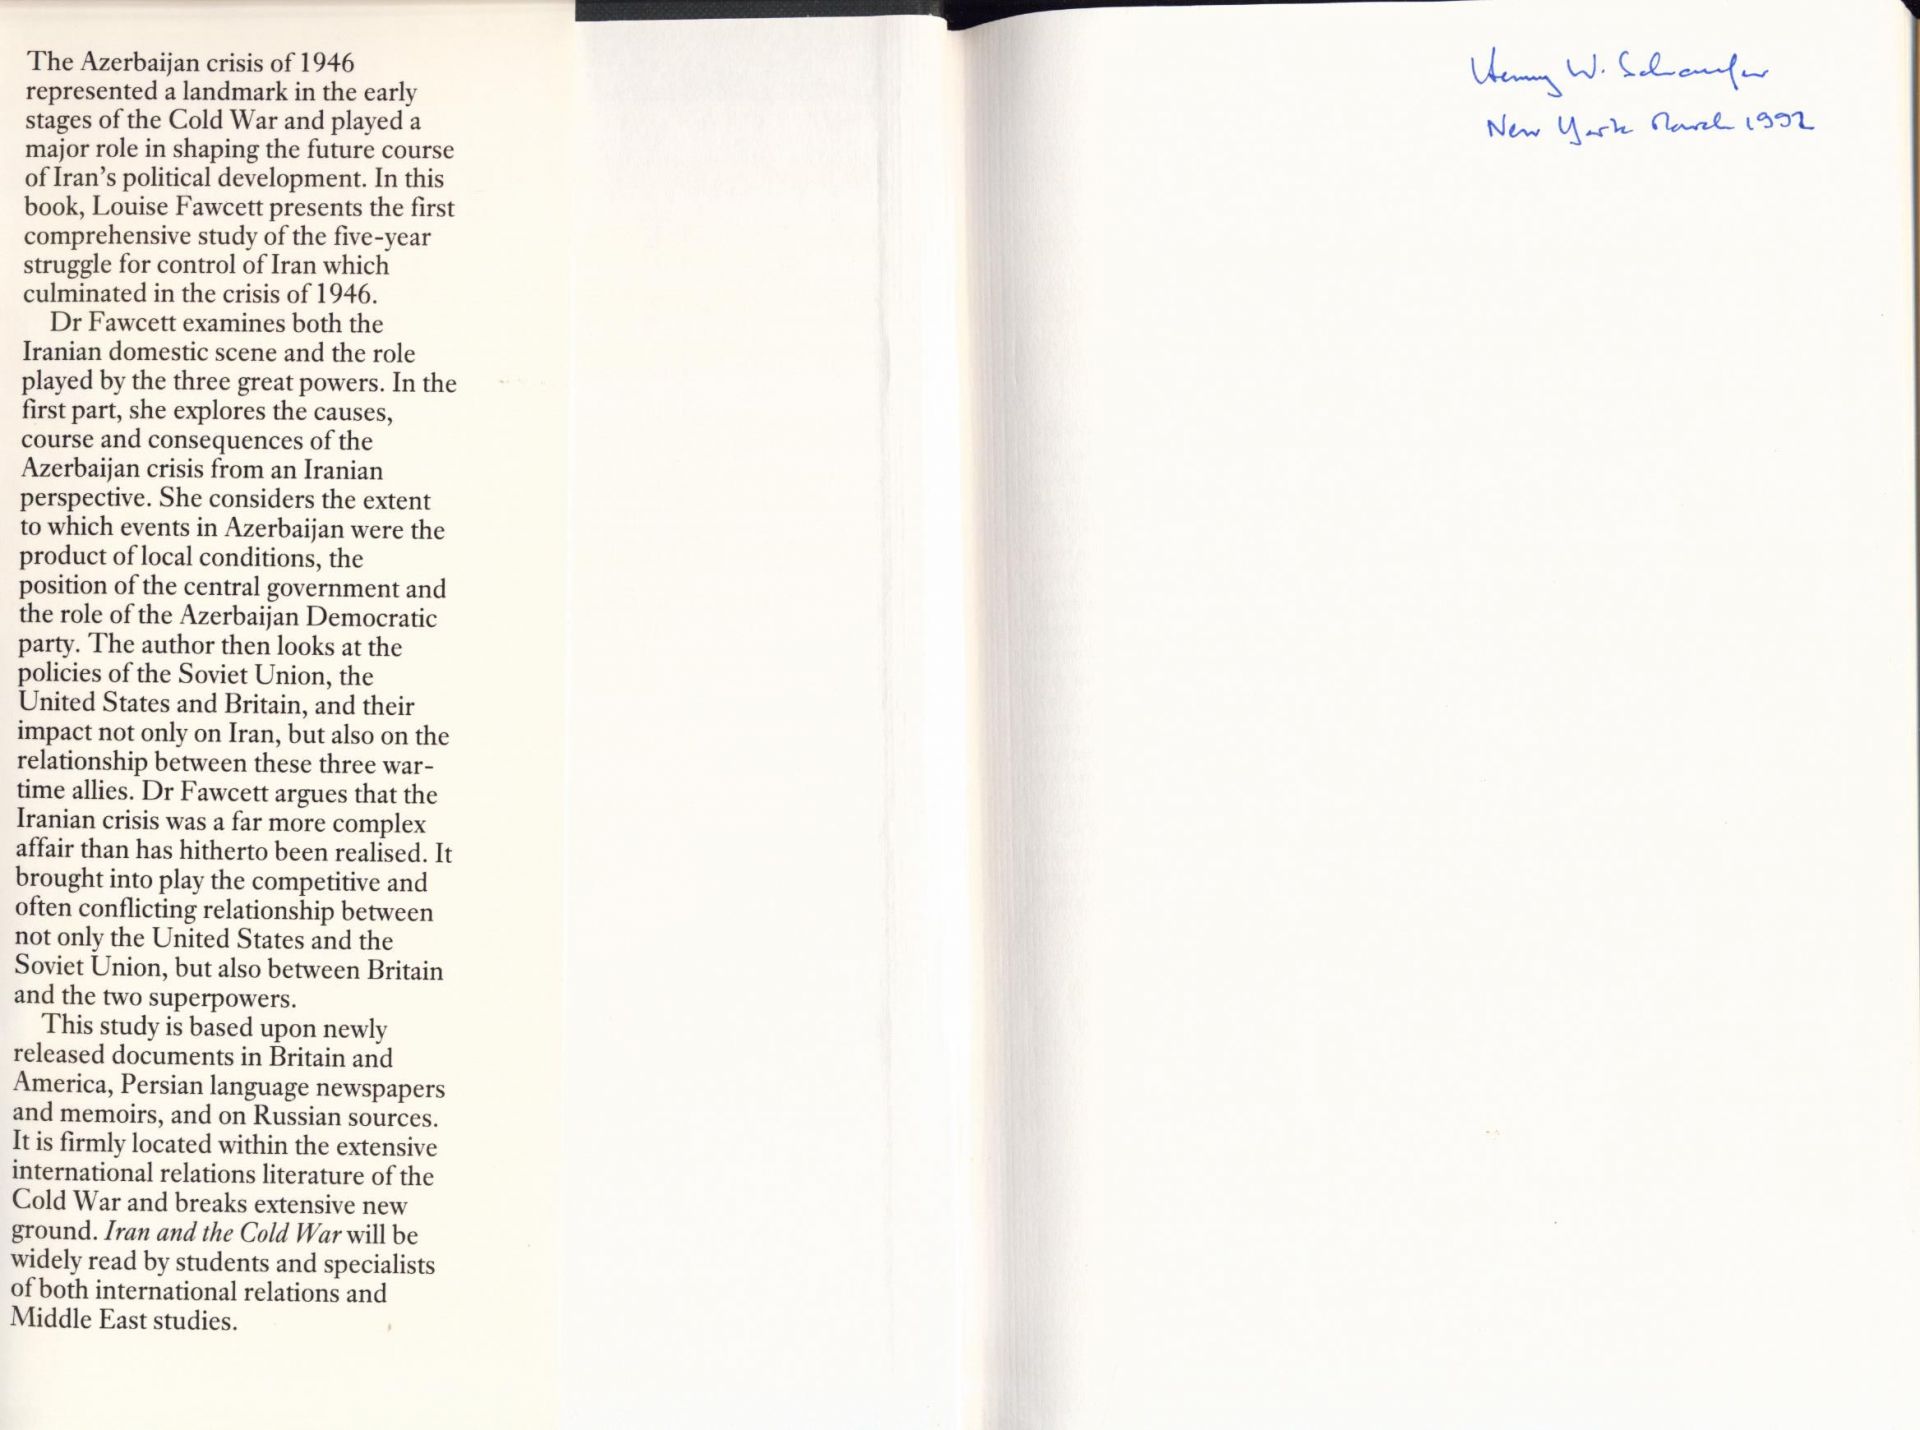 The Azerbaijan crisis of 1946
represented a landmark in the early
stages of the Cold War and played a
major role in shaping the future course
of Iran's political development. In this
book, Louise Fawcett presents the first
comprehensive study of the five-year
struggle for control of Iran which
culminated in the crisis of 1946.
Dr Fawcett examines both the
Iranian domestic scene and the role
played by the three great powers. In the
first part, she explores the causes,
course and consequences of the
Azerbaijan crisis from an Iranian
perspective. She considers the extent
to which events in Azerbaijan were the
product of local conditions, the
position of the central government and
the role of the Azerbaijan Democratic
party. The author then looks at the
policies of the Soviet Union, the
United States and Britain, and their
impact not only on Iran, but also on the
relationship between these three war-
time allies. Dr Fawcett argues that the
Iranian crisis was a far more complex
affair than has hitherto been realised. It
brought into play the competitive and
often conflicting relationship between
not only the United States and the
Soviet Union, but also between Britain
and the two superpowers.
This study is based upon newly
released documents in Britain and
America, Persian language newspapers
and memoirs, and on Russian sources.
It is firmly located within the extensive
international relations literature of the
Cold War and breaks extensive new
ground. Iran and the Cold War will be
widely read by students and specialists
of both international relations and
Middle East studies.
Henry W.
New York March 1992